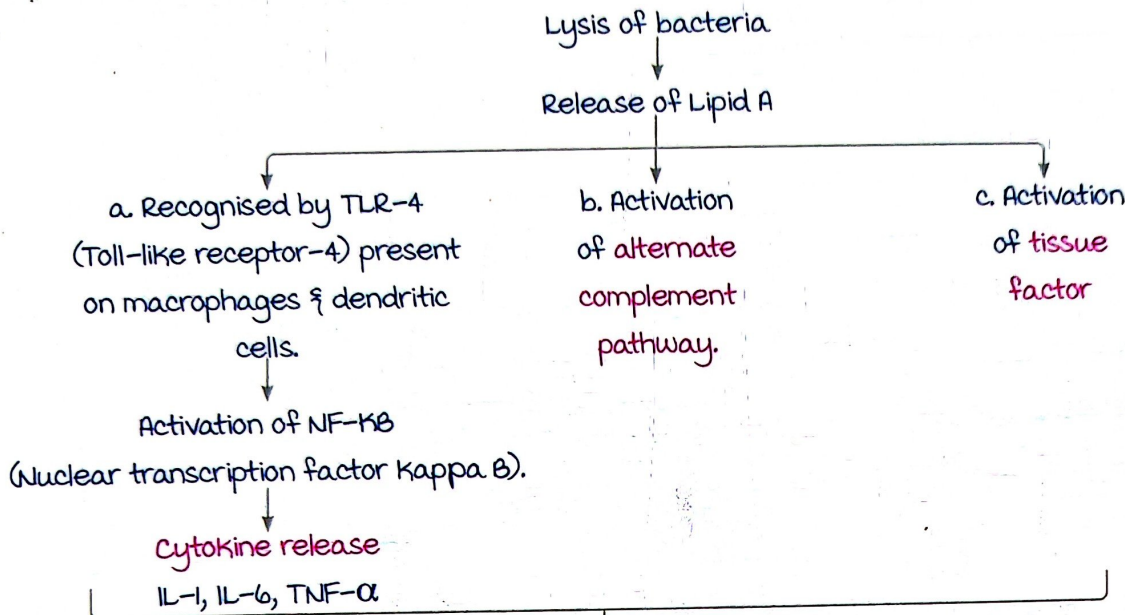 Lysis of bacteria
Release of Lipid A
a. Recognised by TLR-4
(Toll-like receptor-4) present
on macrophages & dendritic
cells.
Activation of NF-KB
(Nuclear transcription factor Kappa B).
Cytokine release
IL-1, IL-6, TNF-α
b. Activation
of alternate
complement
pathway.
c. Activation
of tissue
factor